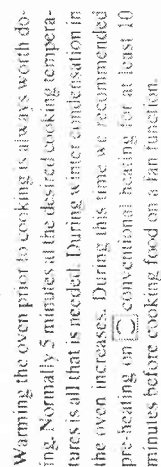 Warming the oven prior to cooking is always worth do-
ing. Normally 5 minutes at the desired cooking tempera-
tures is all that is needed. During winter condensation in
the oven increases. During this time we recommended
pre-heating on conventional heating for at least 10
minutes before cooking food on a fan function.